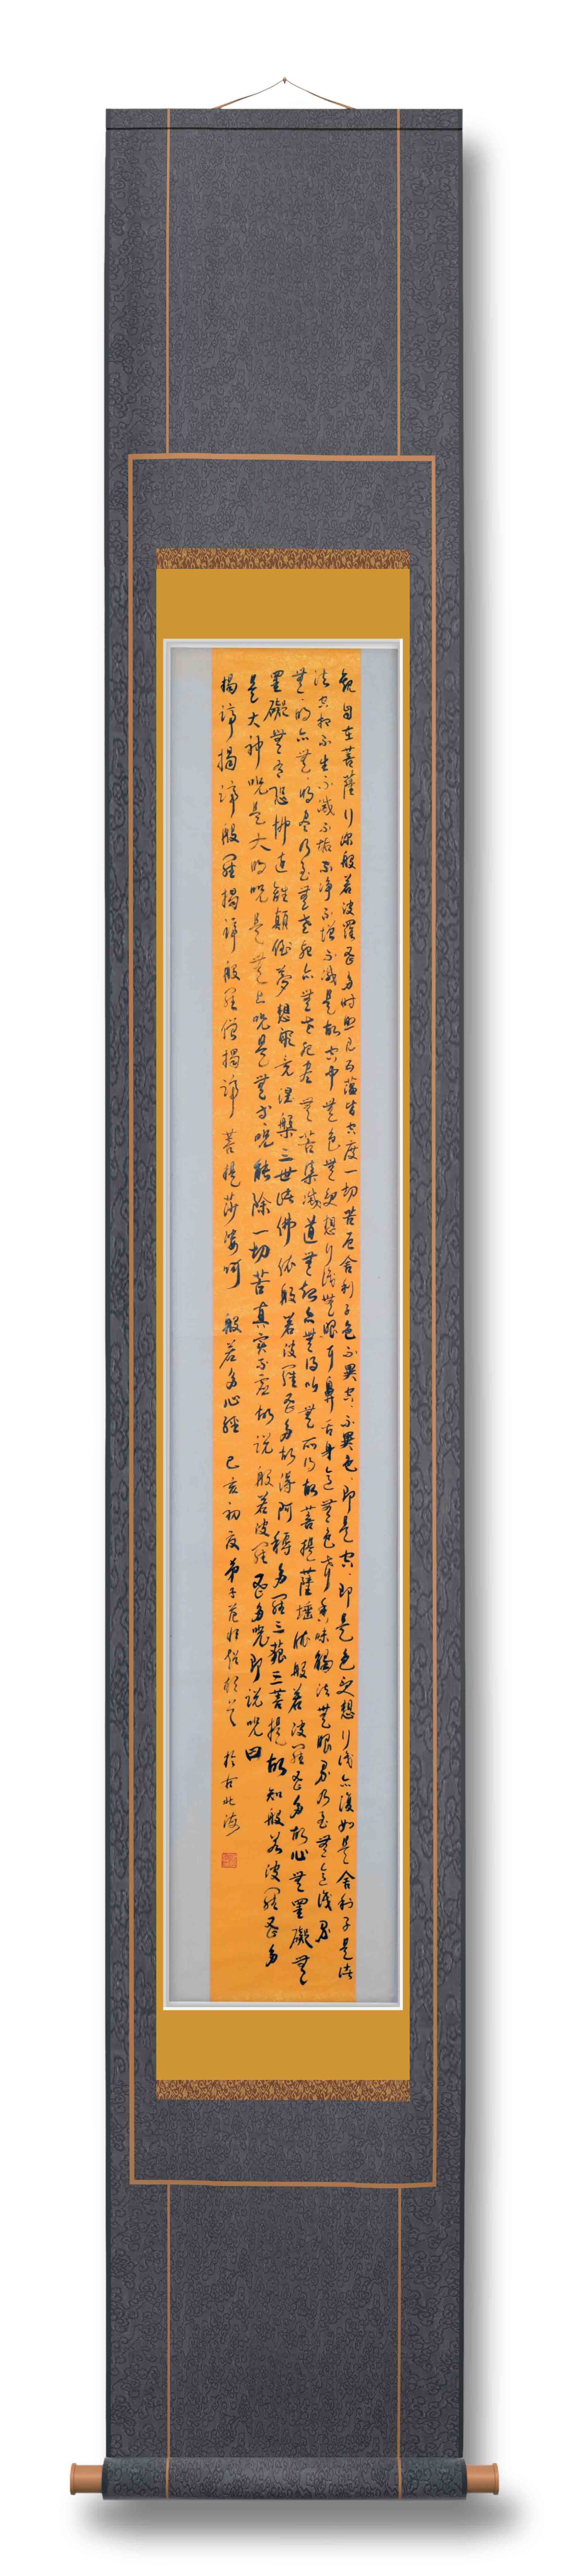 觀自在菩薩行深般若波羅蜜多時照見五蘊皆空度一切苦厄舍利子色不異空空不異色色即是空空即是色受想行識亦復如是舍利子是諸
法空相不生不滅不垢不淨不增不減是故空中無色無受想行識無眼耳鼻舌身意無色聲香味觸法無眼界乃至無意識界
無無明亦無無明盡乃至無老死亦無老死盡無苦集滅道無智亦無得以無所得故菩提薩埵依般若波羅蜜多故心無罣礙無
罣礙無有恐怖遠離顛倒夢想究竟涅槃三世諸佛依般若波羅蜜多故得阿耨多羅三藐三菩提故知般若波羅蜜多
是大神咒是大明咒是無上咒是無等等咒能除一切苦真實不虛故說般若波羅蜜多咒即說咒曰
揭諦揭諦般羅揭諦般羅僧揭諦菩提莎婆呵 般若多心經 己亥初夏弟子范 於古北海